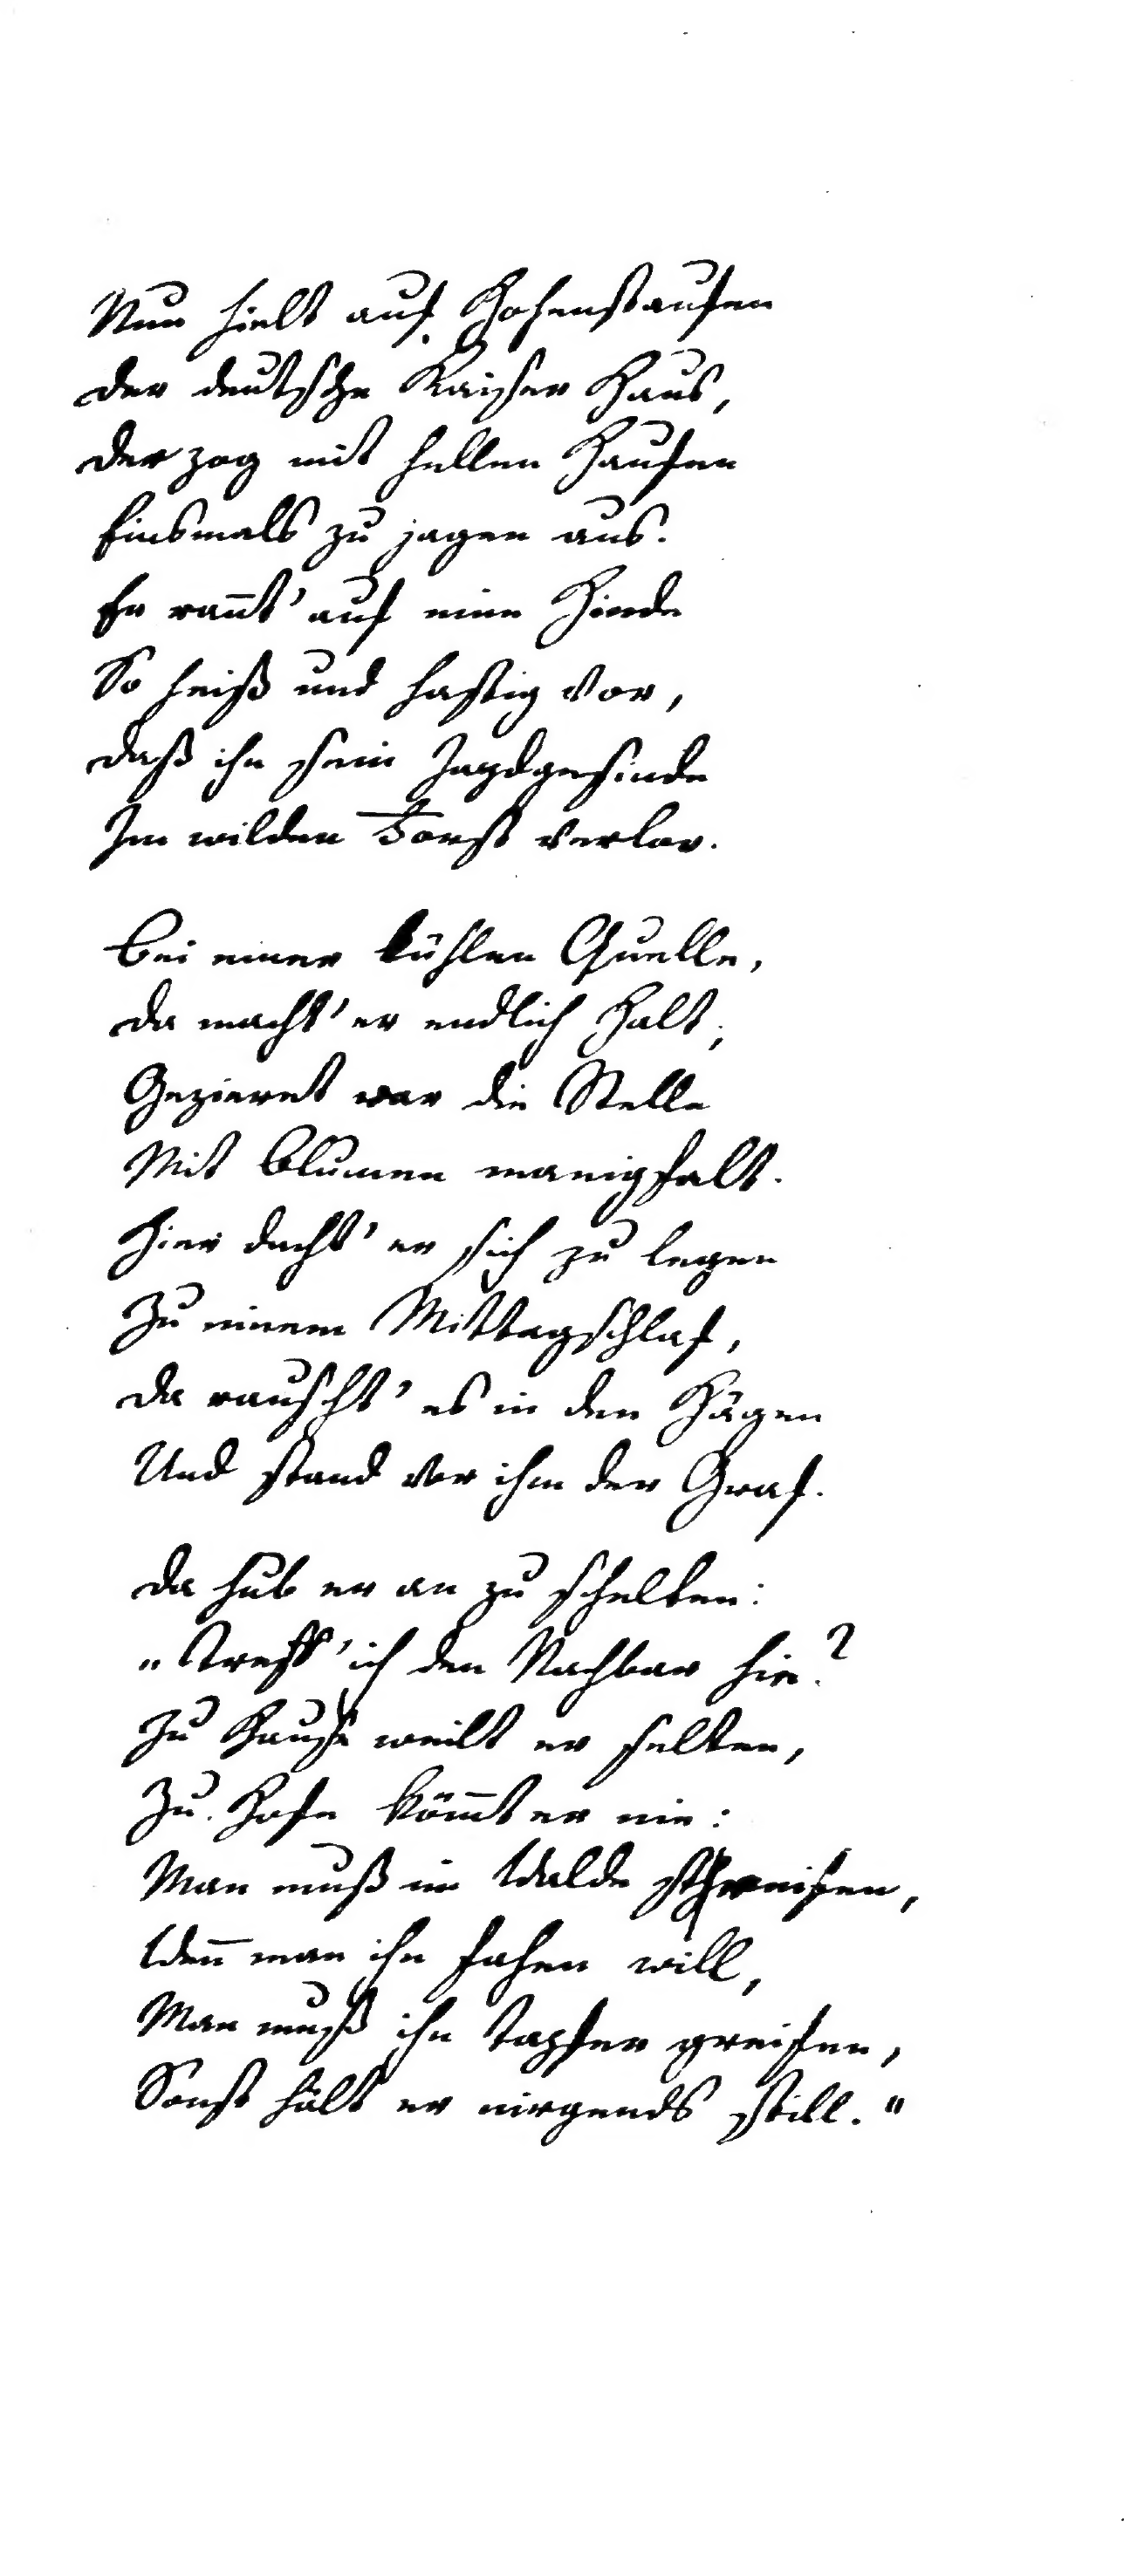 Nun hielt auf Hohenstaufen
Der deutsche Kaiser Haus,
Der zog mit hellen Haufen
Einsmals zu jagen aus.
Er rannt' auf eine Hinde
So heiß und hastig vor,
Daß ihn sein Jagdgesinde
Im wilden Forst verlor.
Bei einer kühlen Quelle,
Da macht' er endlich Halt;
Gezieret war die Stelle
Mit Blumen manigfalt.
Hier dacht' er sich zu legen
Zu einem Mittagschlaf,
Da rauscht' es in den Hägen
Und stand vor ihm der Graf.
Da hub er an zu schelten:
„Treff' ich den Nachbar hie?
Zu Hause weilt er selten,
Zu Hofe kömmt er nie:
Man muß im Walde streifen,
Wenn man ihn fahen will,
Man muß ihn tapfer greifen,
Sonst hält er nirgends still."